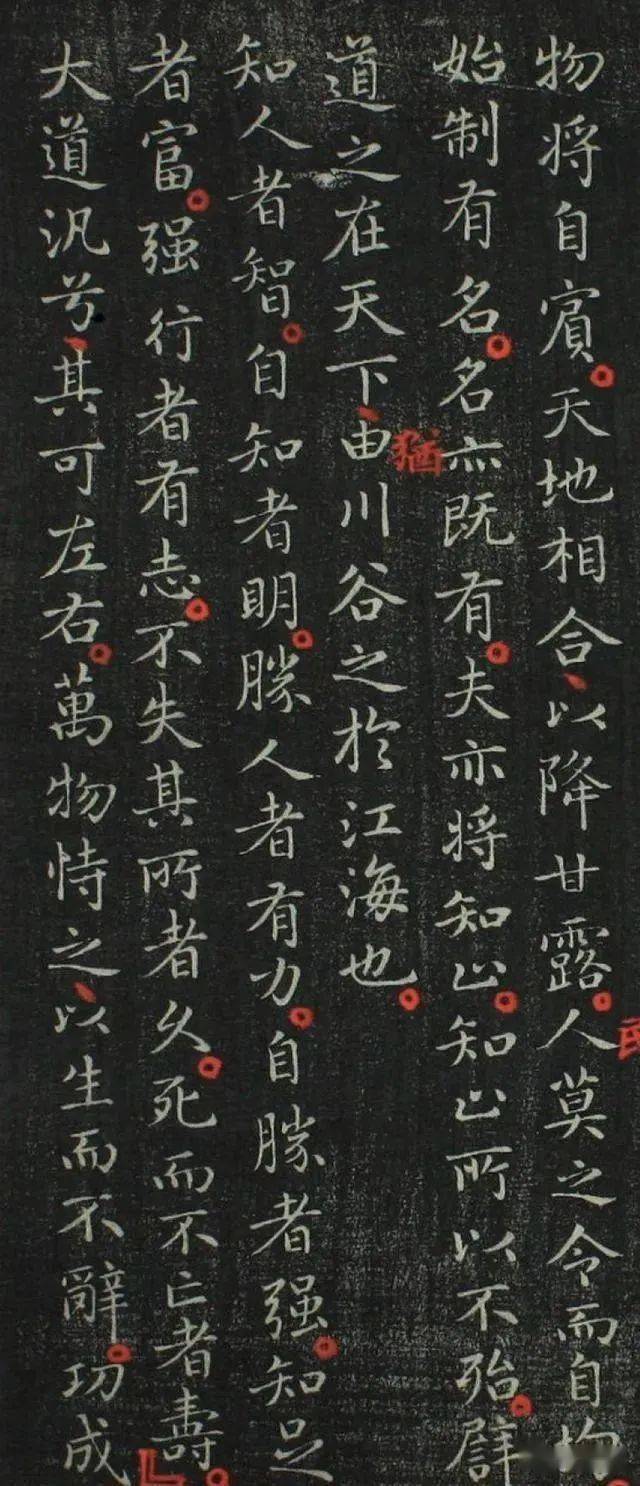 物将自賓。天地相合、以降甘露。人莫之令而自均
民
始制有名。名亦既有。夫亦将知止。知止所以不殆。譬
道之在天下、由川谷之於江海也。
猶
知人者智。自知者明。勝人者有力。自勝者强。知足
者富。强行者有志。不失其所者久。死而不亡者壽。
大道汎兮、其可左右。萬物恃之、以生而不辭。功成